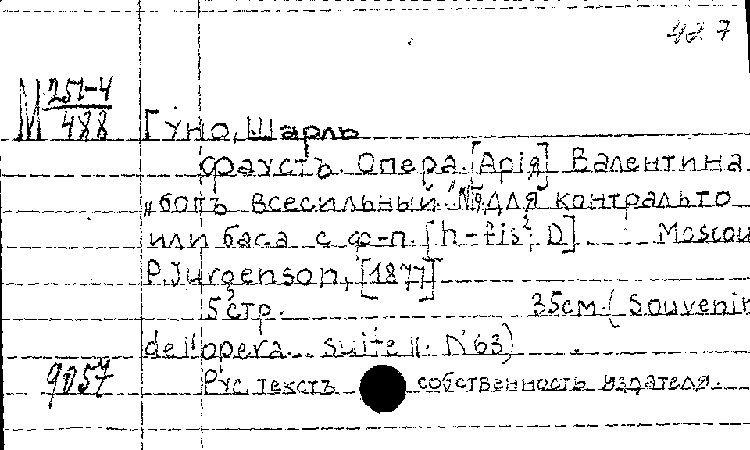 427
М 251-4/488
Гуно, Шарль
Фаустъ. Опера. [Арія] Валентина
„богъ всесильный." №, для контральто
или баса с ф-п. [h-fis², D] Moscou
P. Jurgenson, [1877]
5 стр. 35см. (Souvenir
de l'opera... Suite II. N 63)
9057
Рус. текстъ собственность издателя.